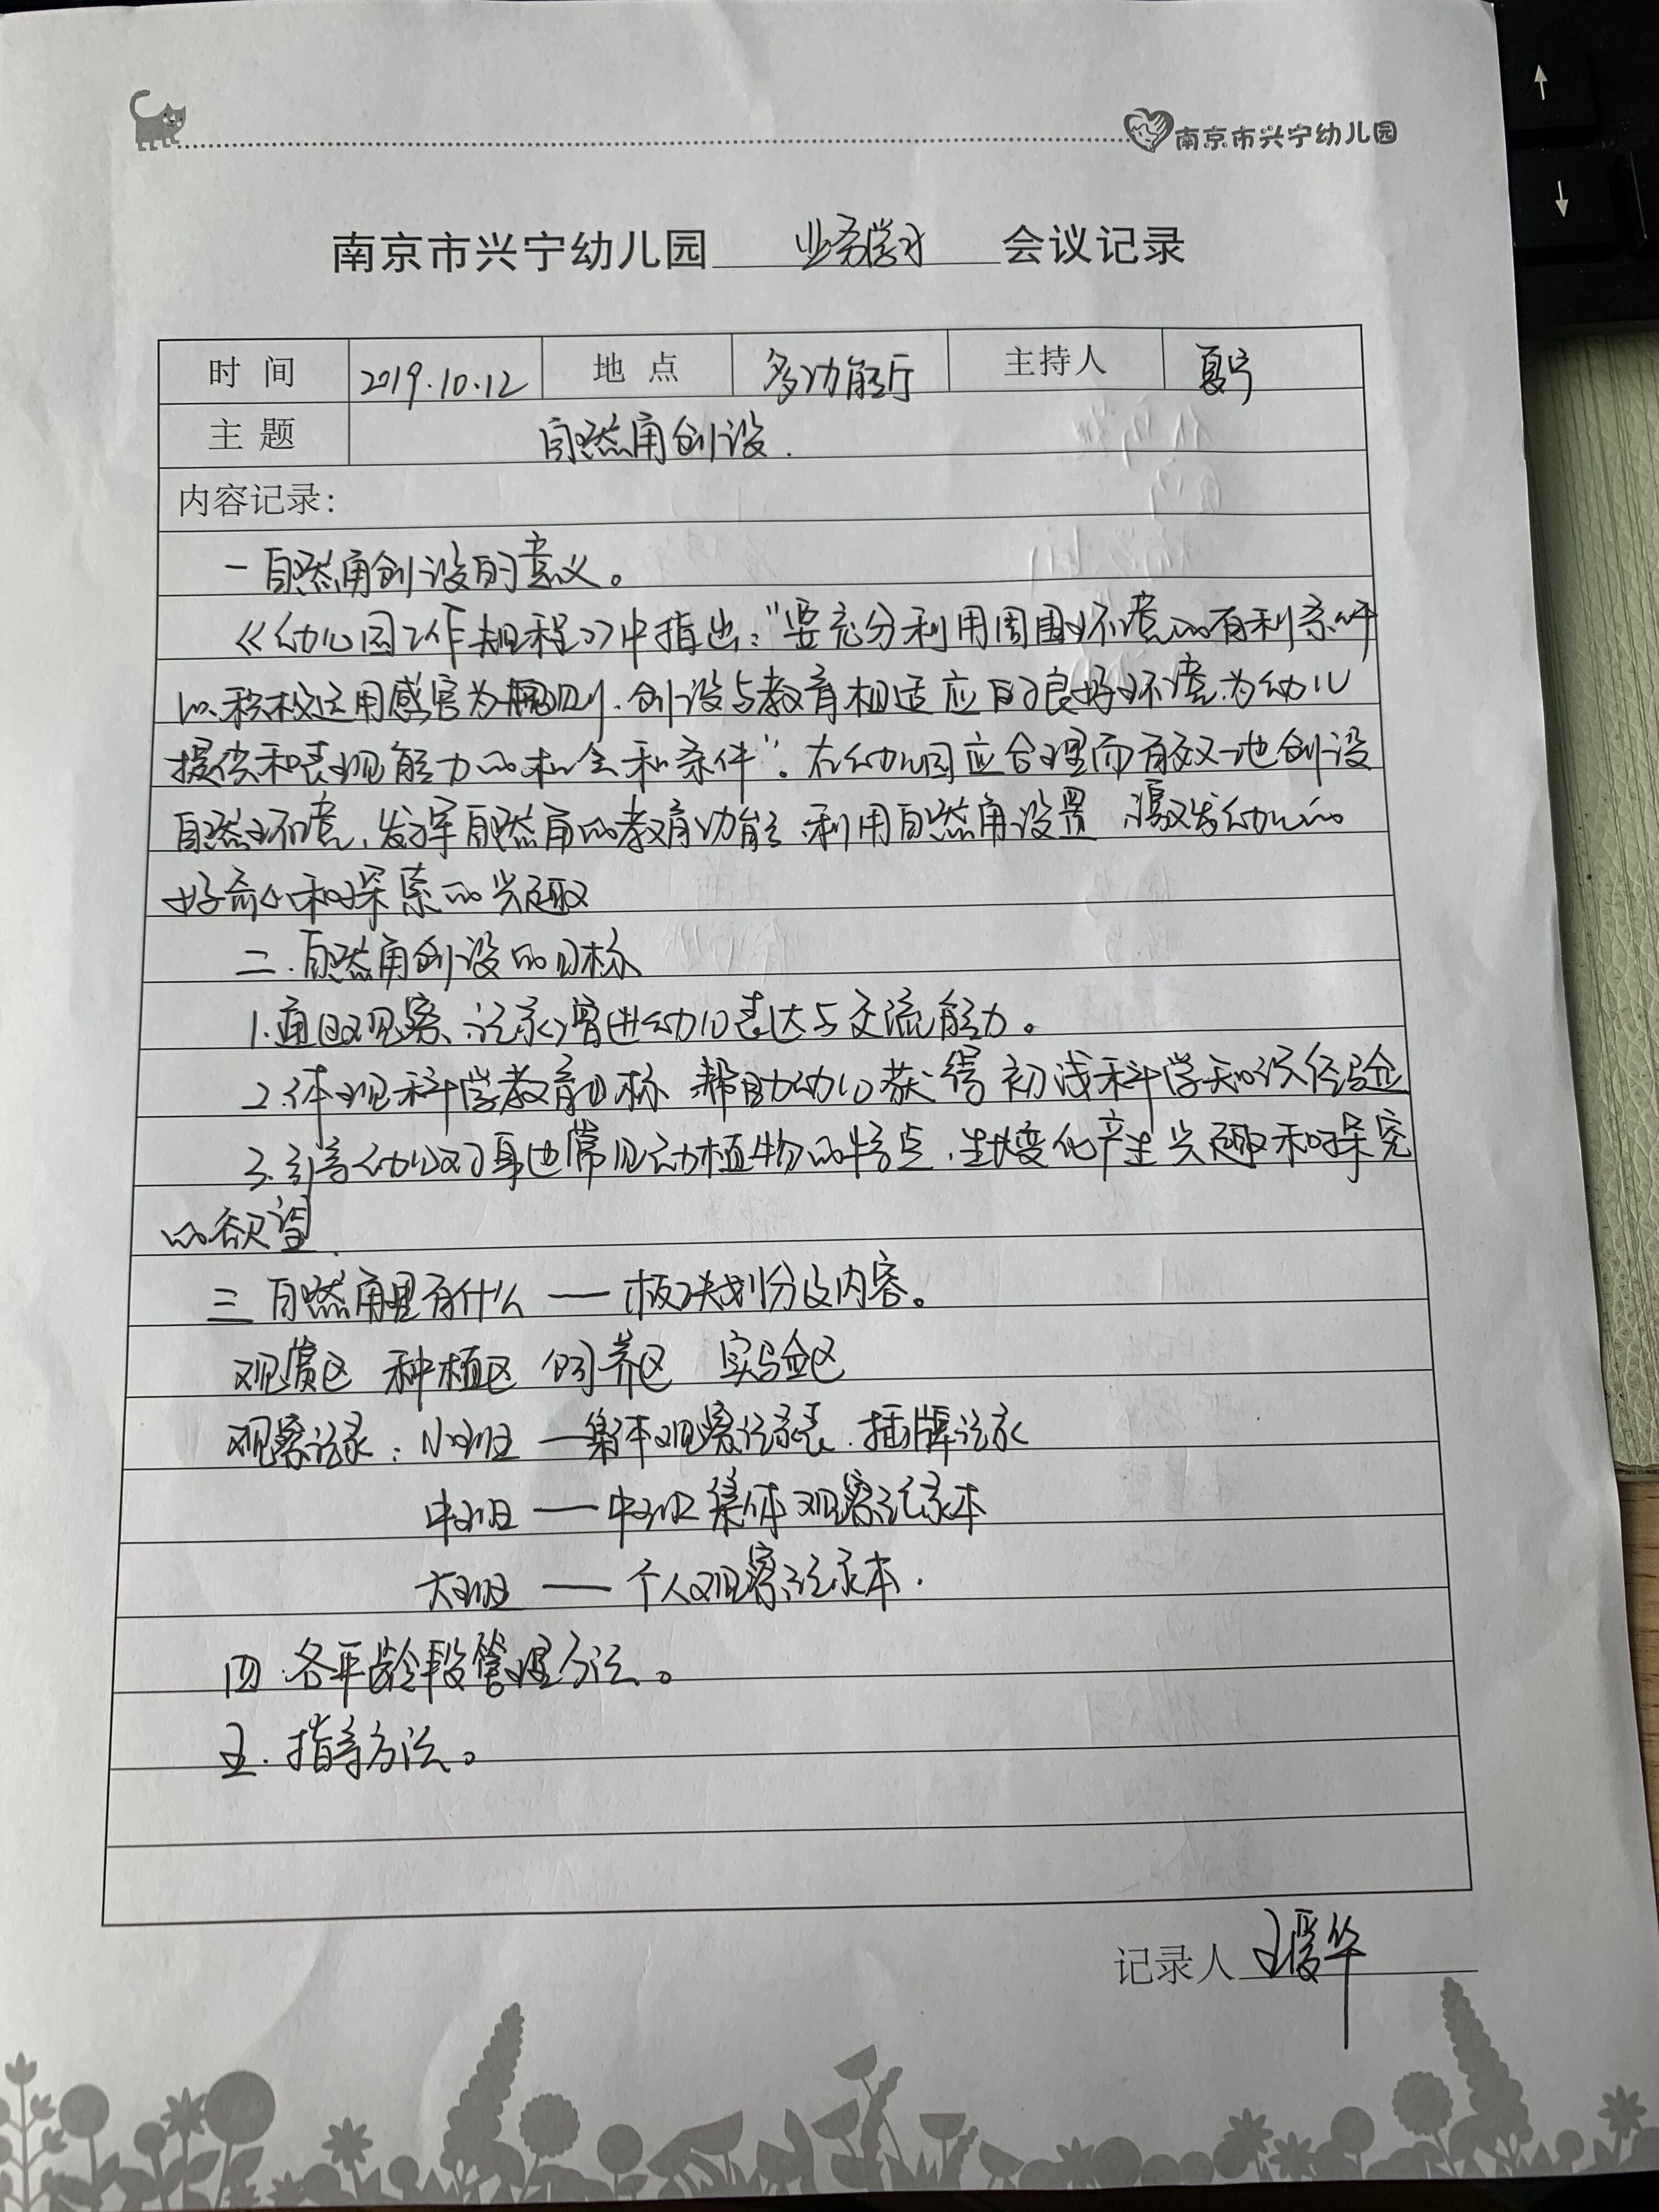 南京市兴宁幼儿园
南京市兴宁幼儿园 业务学习 会议记录
时 间 2019.10.12 地 点 多功能厅 主持人 夏宁
主 题 自然角创设.
内容记录:
一 自然角创设的意义。
《幼儿园工作规程》中指出:"要充分利用周围环境的有利条件
以积极运用感官为原则、创设与教育相适应的良好环境为幼儿
提供和表现能力的机会和条件"。在幼儿园应合理而有效地创设
自然环境,发挥自然角的教育功能 利用自然角设置 激发幼儿的
好奇心和探索的兴趣
二.自然角创设的目标
1.通过观察、记录增进幼儿表达与交流能力。
2.体现科学教育目标 帮助幼儿获得初浅科学知识经验
3.引导幼儿对身边常见动植物的特点、生长变化产生兴趣和探究
的欲望.
三 自然角里有什么 — 板块划分及内容。
观赏区 种植区 饲养区 实验区
观察记录: 小班 — 集体观察记录表.插牌记录
中班 — 中班集体观察记录本
大班 — 个人观察记录本.
四.各年龄段管理方法。
五.指导方法。
记录人 王爱华